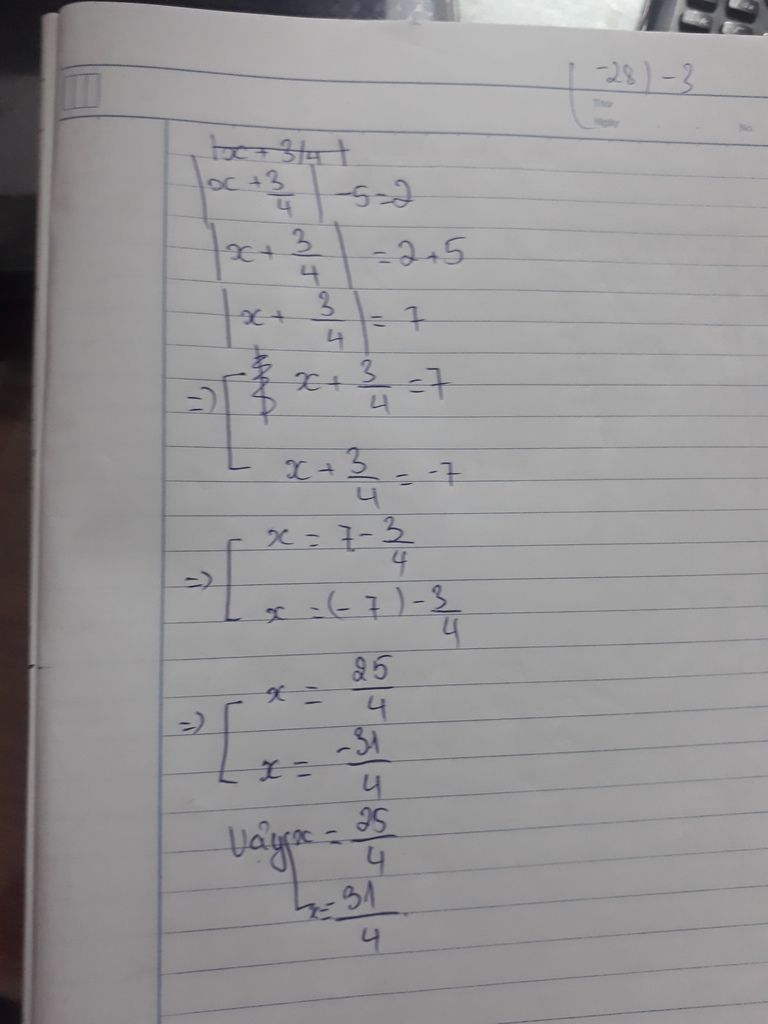 (-28) - 3
Thứ
Ngày
No.
|x + 3/4|
|x + 3/4| - 5 = 2
|x + 3/4| = 2 + 5
|x + 3/4| = 7
=> [ x + 3/4 = 7
x + 3/4 = -7
=> [ x = 7 - 3/4
x = (-7) - 3/4
=> [ x = 25/4
x = -31/4
Vậy [ x = 25/4
x = 31/4